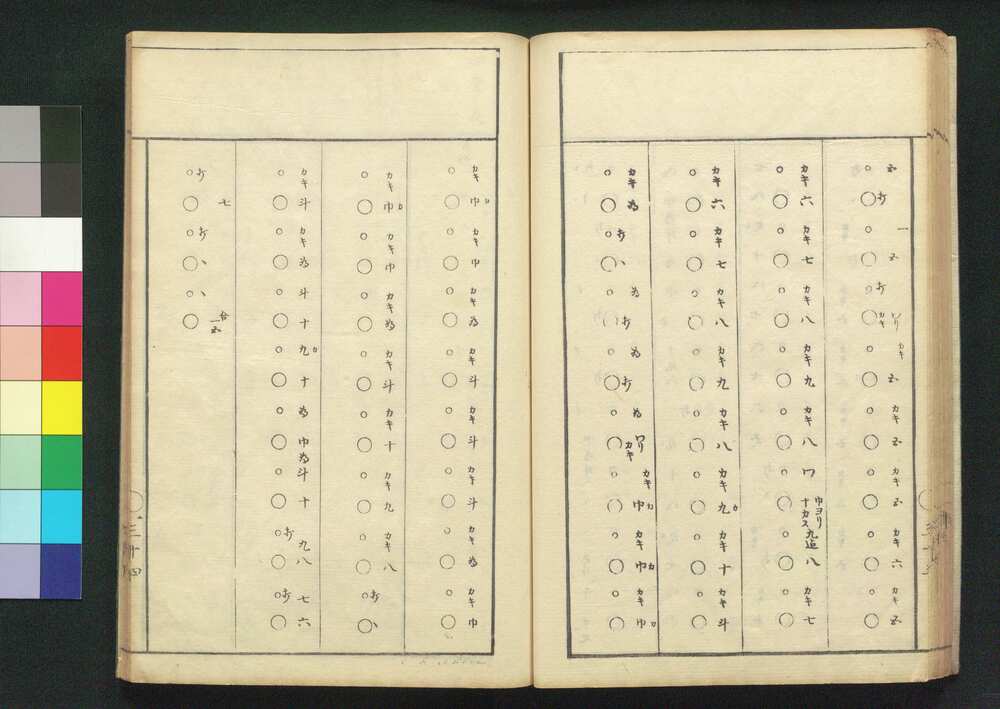 五 一 五 ワリ カキ カキ 五 カキ 五 カキ 五 カキ 六 カキ 五
カキ 六 カキ 七 カキ 八 カキ 九 カキ 八 ワ 巾ヨリ 十カス 九迠 八 カキ 七
カキ 六 カキ 七 カキ 八 カキ 九 カキ 八 カキ 九カ カキ 十 カキ 斗
カキ 為 為 為 為 ワリ カキ カキ 巾カ カキ 巾カ カキ 巾カ
カキ 巾カ カキ 巾 カキ 為 カキ 斗 カキ 斗 カキ 斗 カキ 為 カキ 巾
カキ 巾カ カキ 巾 カキ 為 カキ 斗 カキ 十 カキ 九 カキ 八
カキ 斗 カキ 為 斗 十 九カ 十 為 巾 為 斗 十 九 八 七 六
七 合 一五
三十四